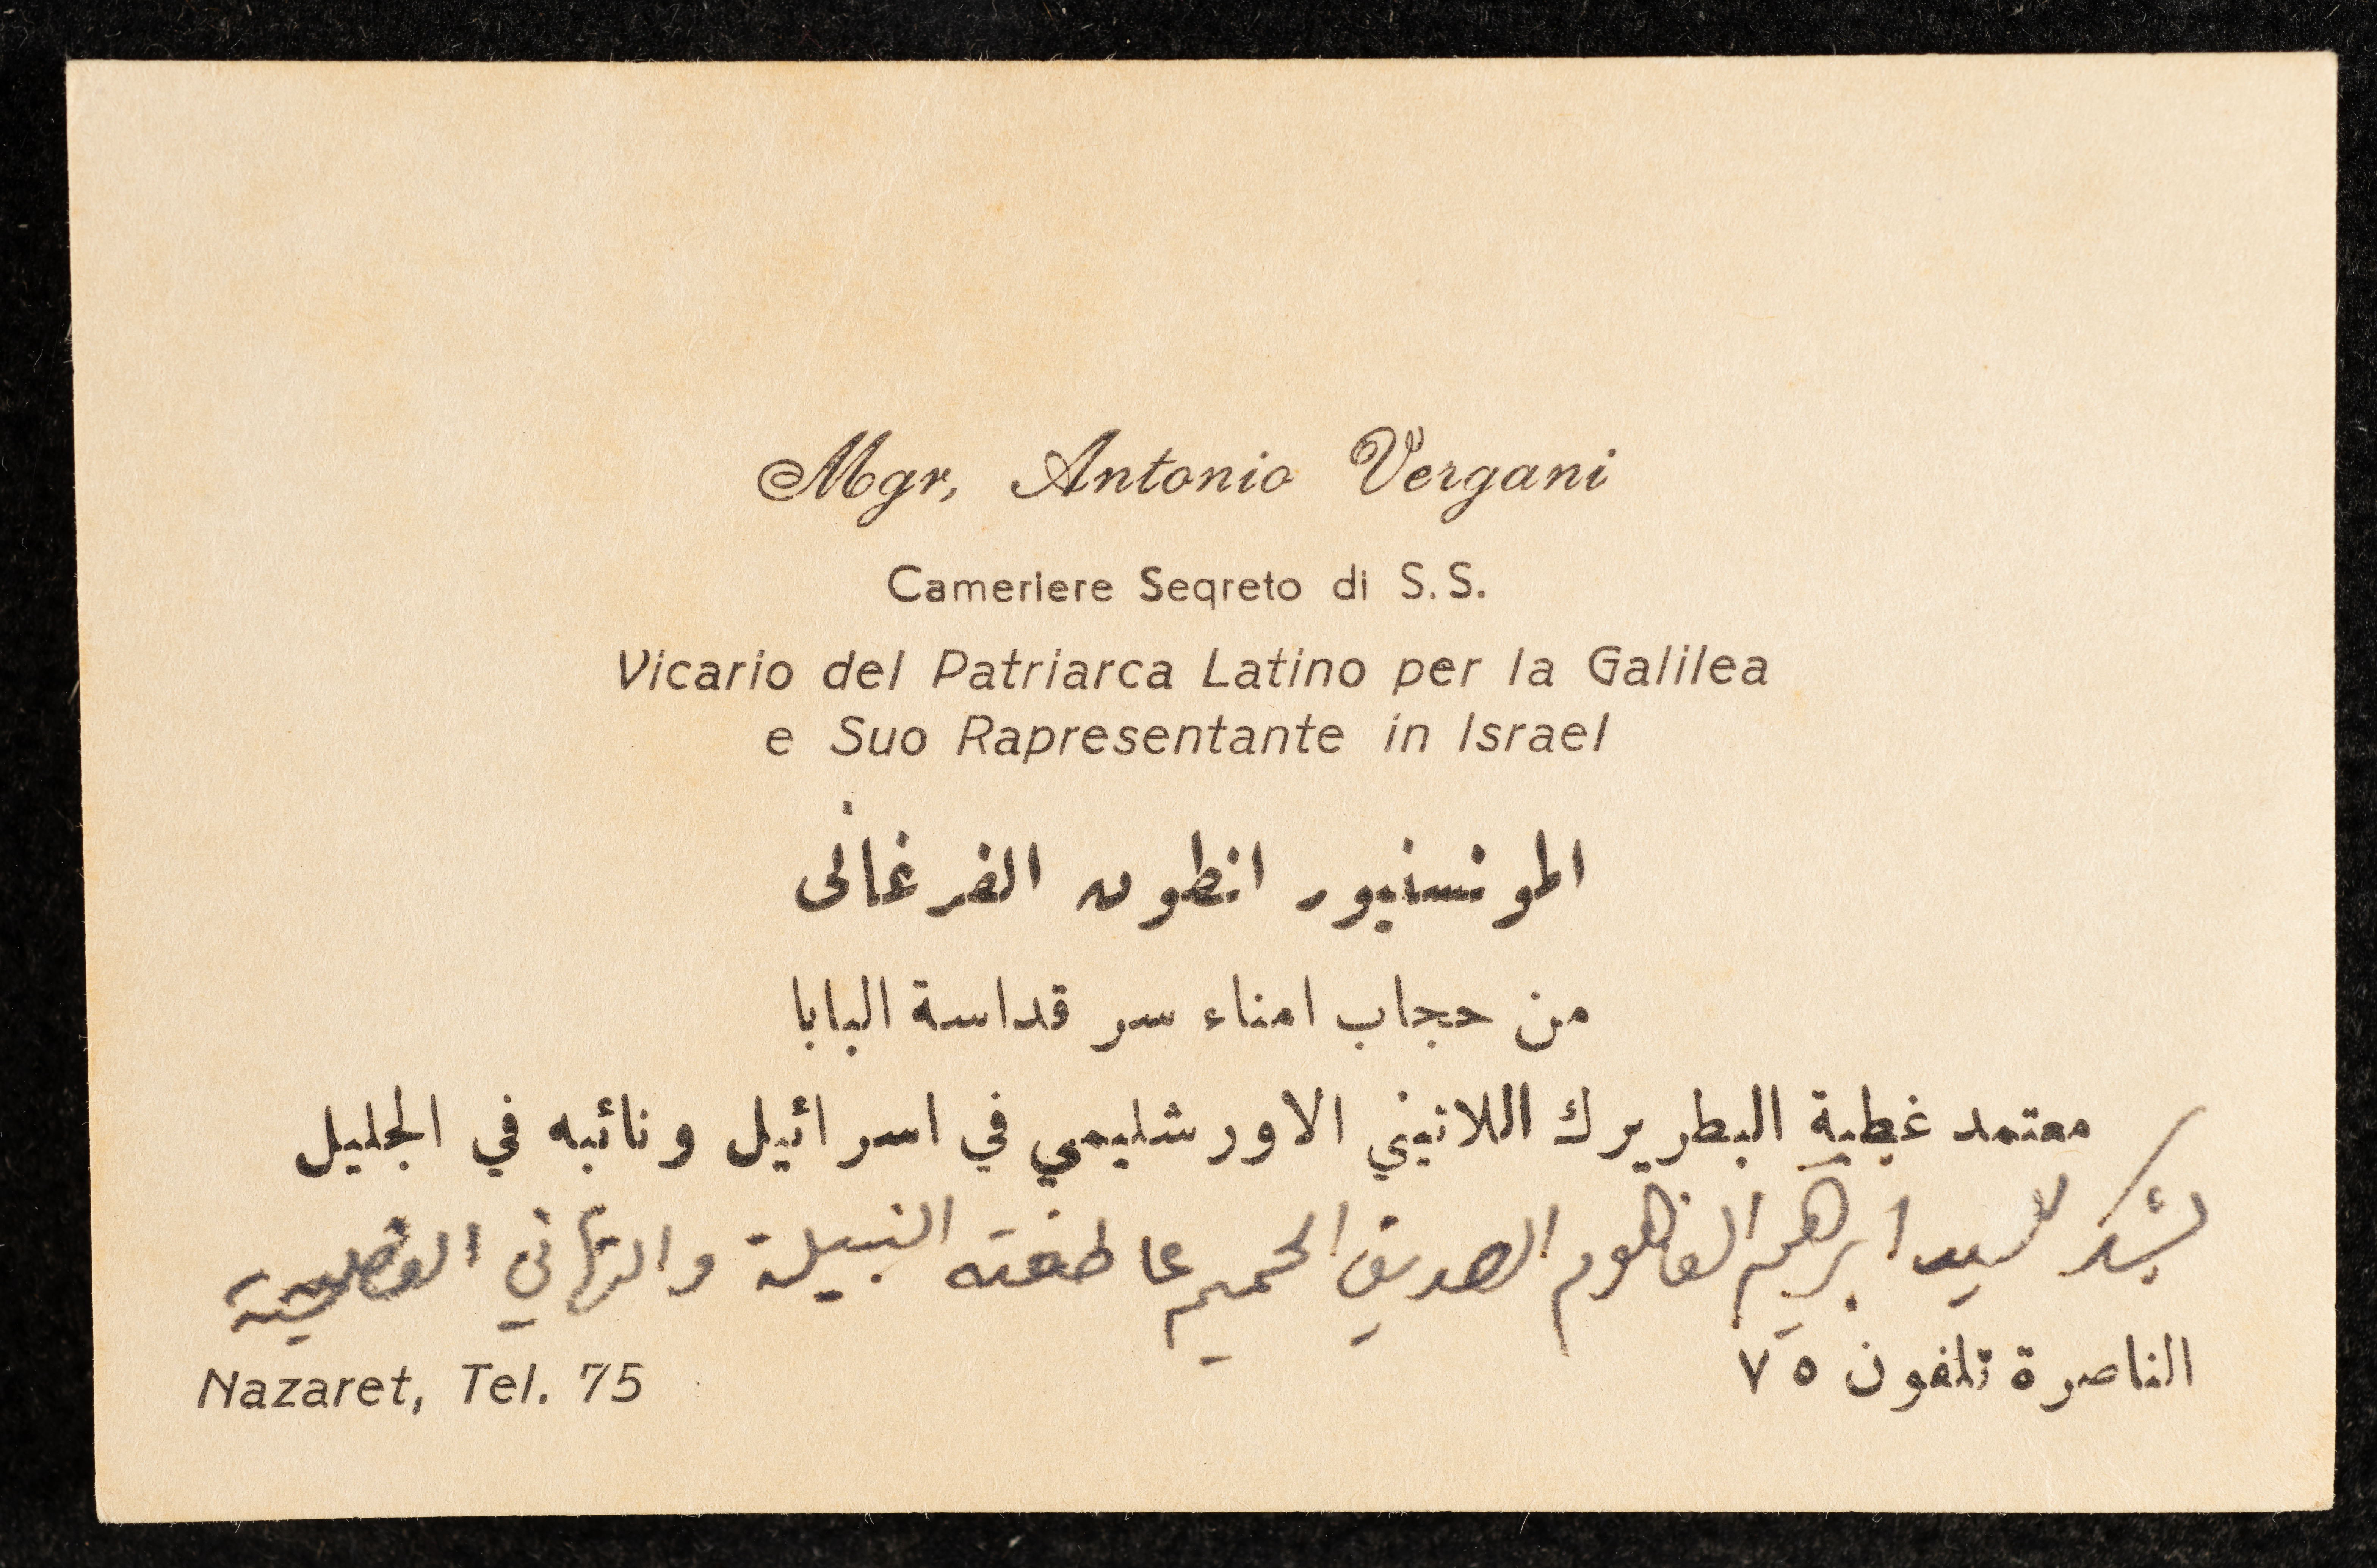 Mgr, Antonio Vergani
Cameriere Seqreto di S.S.
Vicario del Patriarca Latino per la Galilea
e Suo Rapresentante in Israel
المونسنيور انطون الفرغانى
من حجاب امناء سر قداسة البابا
معتمد غبطة البطريرك اللاتيني الاورشليمي في اسرائيل ونائبه في الجليل
يشكر للسيد ابرهيم الفاهوم الصديق الحميم عاطفته النبيلة والتهاني
الناصرة تلفون ٧٥
Nazaret, Tel. 75